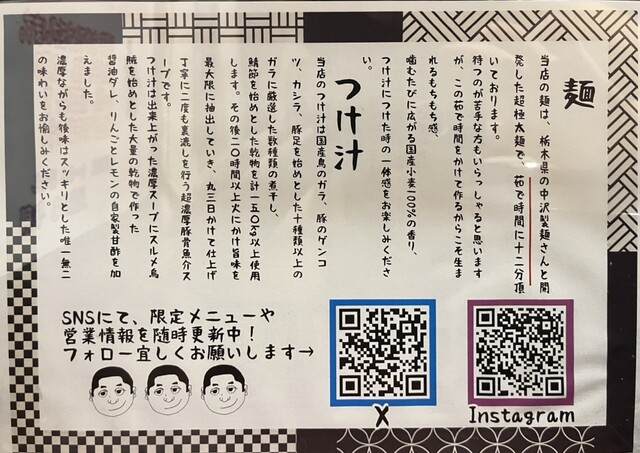 麺
当店の麺は、栃木県の中沢製麺さんと開
発した超極太麺で、茹で時間に十二分頂
いております。
待つのが苦手な方もいらっしゃると思います
が、この茹で時間をかけて作るからこそ生ま
れるもちもち感、
噛むたびに広がる国産小麦100%の香り、
つけ汁につけた時の一体感をお楽しみくださ
い。
つけ汁
当店のつけ汁は国産鳥のガラ、豚のゲンコ
ツ、カシラ、豚足を始めとした十種類以上の
ガラに厳選した数種類の煮干し、
鯖節を始めとした乾物を計一五〇kg以上使用
します。その後二〇時間以上火にかけ旨味を
最大限に抽出していき、丸三日かけて仕上げ
丁寧に二度も裏漉しを行う超濃厚豚骨魚介ス
ープです。
つけ汁は出来上がった濃厚スープにスルメ烏
賊を始めとした大量の乾物で作った
醤油ダレ、りんごとレモンの自家製甘酢を加
えました。
濃厚ながらも後味はスッキリとした唯一無二
の味わいをお愉しみください。
SNSにて、限定メニューや
営業情報を随時更新中！
フォロー宜しくお願いします→
X
Instagram